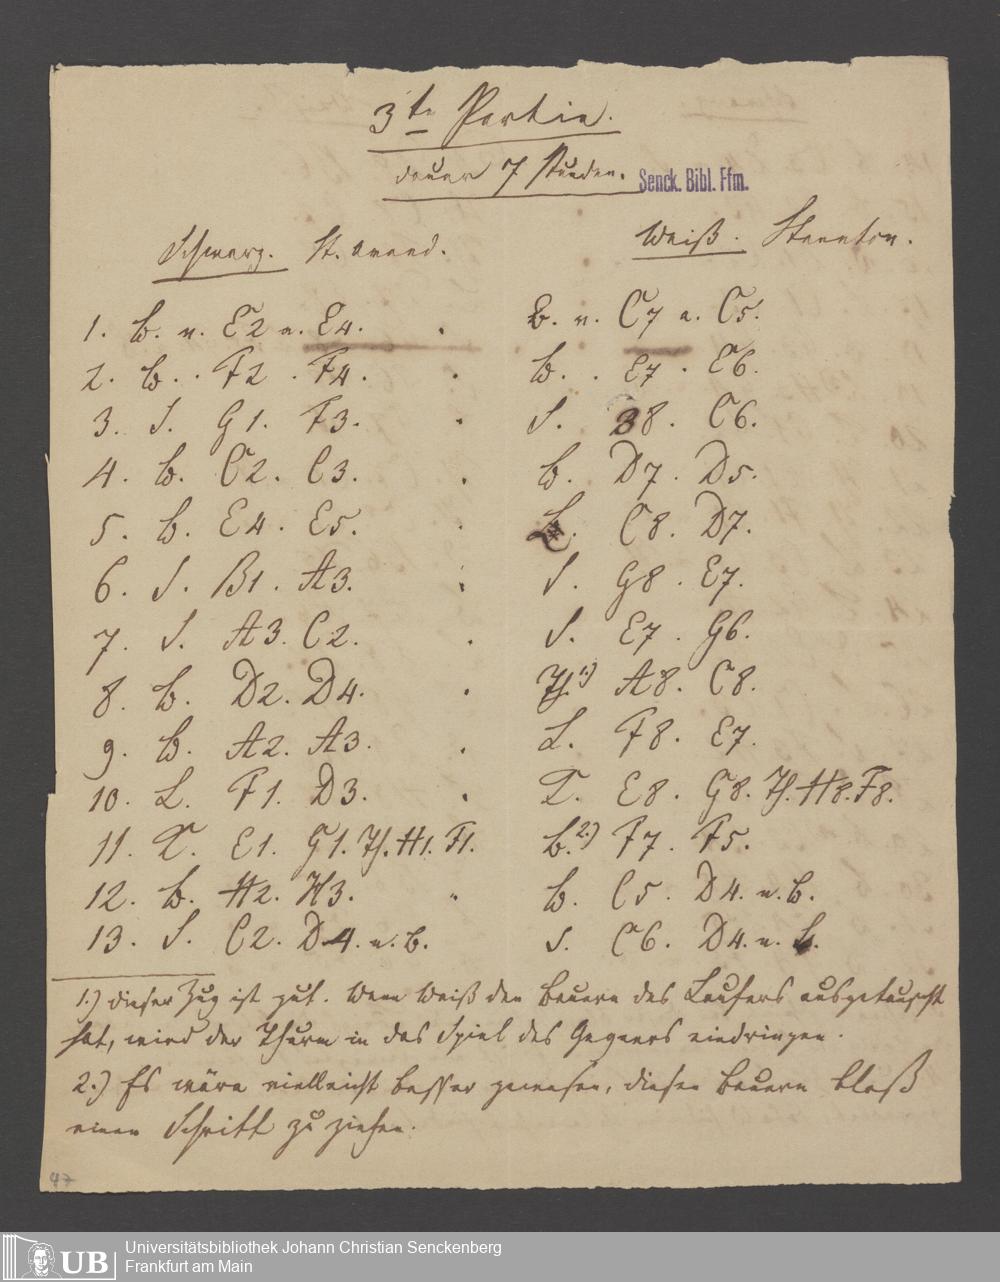 3te Partie.
Dauer 7 Stunden. Senck. Bibl. Ffm.
Schwarz. St. Amand. Weiß. Staunton.
1. B. v. E2 n. E4. B. v. C7 n. C5.
2. B. F2. F4. B. E7. E6.
3. S. G1. F3. S. B8. C6.
4. B. C2. C3. B. D7. D5.
5. B. E4. E5. L. C8. D7.
6. S. B1. A3. S. G8. E7.
7. S. A3. C2. S. E7. G6.
8. B. D2. D4. Th.1) A8. C8.
9. B. A2. A3. L. F8. E7.
10. L. F1. D3. K. E8. G8. Th. H8. F8.
11. K. E1. G1. Th. H1. F1. B.2.) F7. F5.
12. B. H2. H3. B. C5. D4. n. B.
13. S. C2. D4. n. B. S. C6. D4. n. B.
1.) Dieser Zug ist gut. Wenn Weiß den Bauern des Laufers ausgetauscht
hat, wird der Thurm in das Spiel des Gegners eindringen.
2.) Es wäre vielleicht besser gewesen, diesen Bauern bloß
einen Schritt zu ziehen.
47
UB
Universitätsbibliothek Johann Christian Senckenberg
Frankfurt am Main